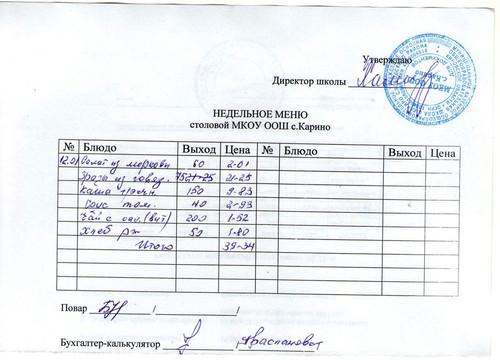 Утверждаю
Директор школы
НЕДЕЛЬНОЕ МЕНЮ
столовой МКОУ ООШ с.Карино
№ Блюдо Выход Цена № Блюдо Выход Цена
12.01 Салат из моркови 60 2-01
Зраза из говяд. 21-25
Каша гречн. 150 9-83
Соус том. 40 2-93
Чай с сах. (вит) 200 1-52
Хлеб рж 50 1-80
Итого 39-34
Повар
Бухгалтер-калькулятор